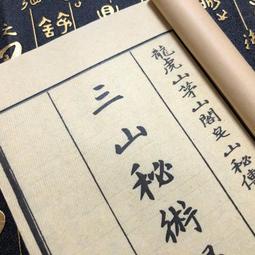 龍虎山茅山閣皂山秘傳
三山秘術